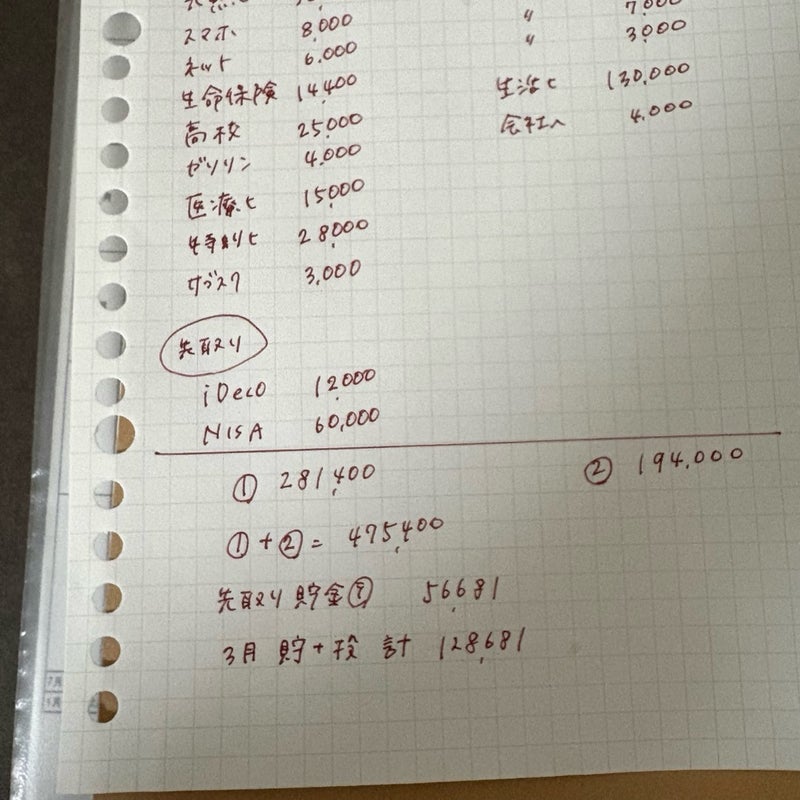 スマホ 8,000
ネット 6,000
生命保険 14,400
高校 25,000
ガソリン 4,000
医療ヒ 15,000
特別ヒ 28,000
サブスク 3,000
先取り
iDeco 12,000
NISA 60,000
① 281,400
①+②= 475,400
先取り貯金㋕ 56,681
3月 貯+投 計 128,681
〃 7,000
〃 3,000
生活ヒ 130,000
会社へ 4,000
② 194,000